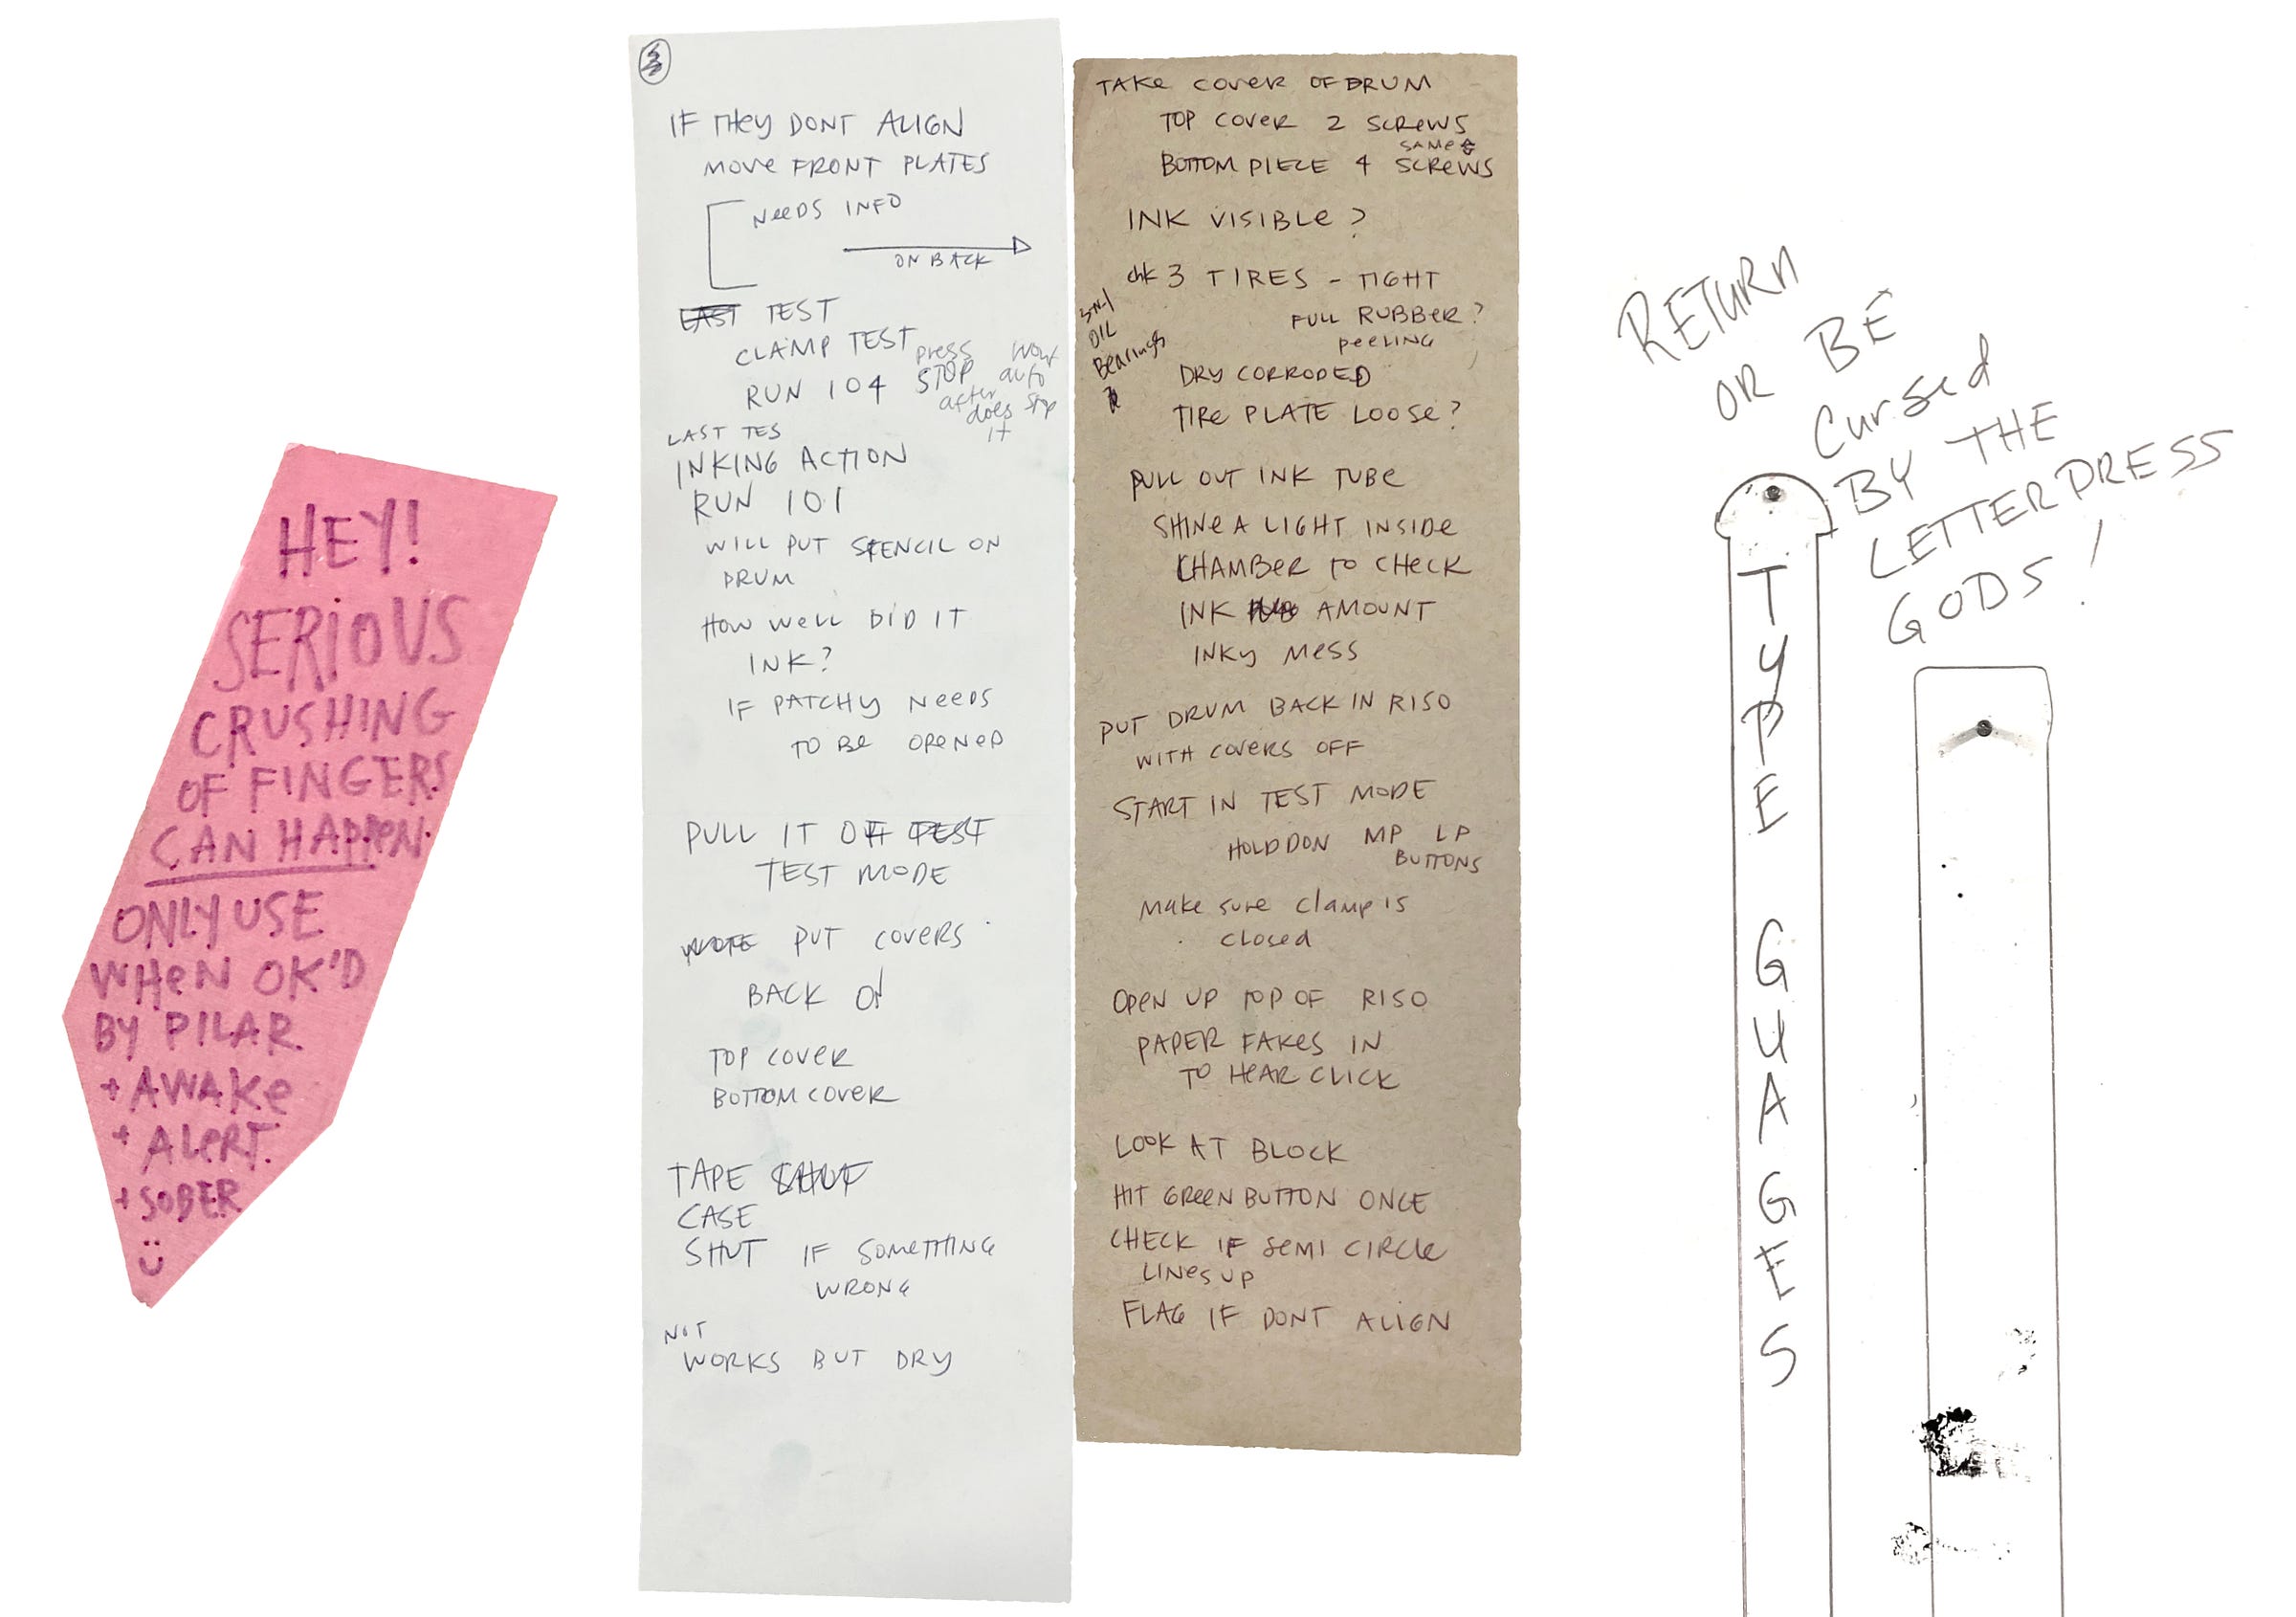 HEY!
SERIOUS
CRUSHING
OF FINGERS
CAN HAPPEN.
ONLY USE
WHEN OK'D
BY PILAR
+ AWAKE
+ ALERT.
+ SOBER
IF THEY DONT ALIGN
MOVE FRONT PLATES
NEEDS INFO
ON BACK
LAST TEST
CLAMP TEST
RUN 104
press
STOP
after
does
it
wont
auto
stop
LAST TES
INKING ACTION
RUN 101
WILL PUT STENCIL ON
DRUM
HOW WELL DID IT
INK?
IF PATCHY NEEDS
TO BE OPENED
PULL IT OF TEST
TEST MODE
PUT COVERS
BACK ON
TOP COVER
BOTTOM COVER
TAPE SHUT
CASE
SHUT IF SOMETHING
WRONG
NOT
WORKS BUT DRY
TAKE COVER OF DRUM
TOP COVER 2 SCREWS
SAME
BOTTOM PIECE 4 SCREWS
INK VISIBLE?
chk 3 TIRES - TIGHT
FULL RUBBER?
PEELING
3-IN-1
OIL
Bearings
DRY CORRODED
TIRE PLATE LOOSE?
PULL OUT INK TUBE
SHINE A LIGHT INSIDE
CHAMBER TO CHECK
INK AMOUNT
INKY MESS
PUT DRUM BACK IN RISO
WITH COVERS OFF
START IN TEST MODE
HOLD DON MP LP
BUTTONS
Make sure clamp is
closed
OPEN UP TOP OF RISO
PAPER FAKES IN
TO HEAR CLICK
LOOK AT BLOCK
HIT GREEN BUTTON ONCE
CHECK IF SEMI CIRCLE
LINES UP
FLAG IF DONT ALIGN
RETURN
OR BE
Cursed
BY THE
LETTERPRESS
GODS!
TYPE GUAGES